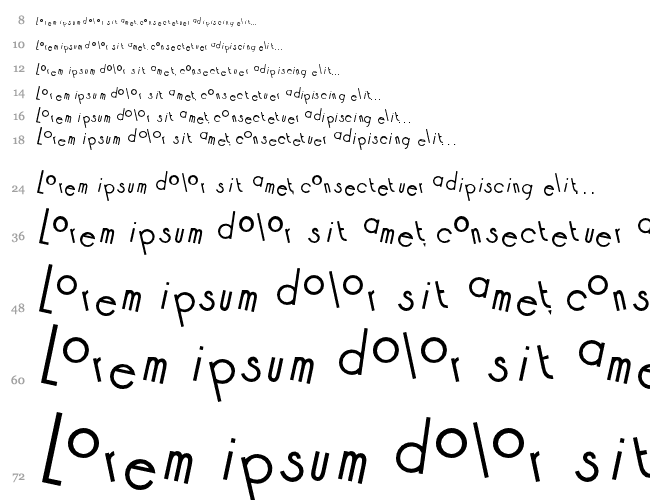 8 Lorem ipsum dolor sit amet, consectetuer adipiscing elit...
10 Lorem ipsum dolor sit amet, consectetuer adipiscing elit...
12 Lorem ipsum dolor sit amet, consectetuer adipiscing elit...
14 Lorem ipsum dolor sit amet, consectetuer adipiscing elit...
16 Lorem ipsum dolor sit amet, consectetuer adipiscing elit...
18 Lorem ipsum dolor sit amet, consectetuer adipiscing elit...
24 Lorem ipsum dolor sit amet, consectetuer adipiscing elit...
36 Lorem ipsum dolor sit amet, consectetuer a
48 Lorem ipsum dolor sit amet, cons
60 Lorem ipsum dolor sit ame
72 Lorem ipsum dolor sit